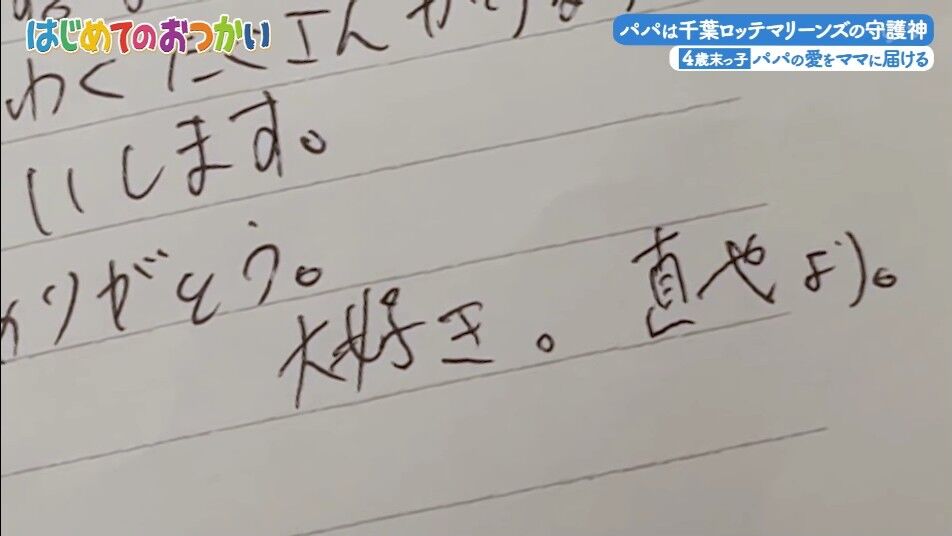 はじめてのおつかい
パパは千葉ロッテマリーンズの守護神
4歳末っ子 パパの愛をママに届ける
わくたくさんかけ
いします。
ありがとう。
大好き。直やより。